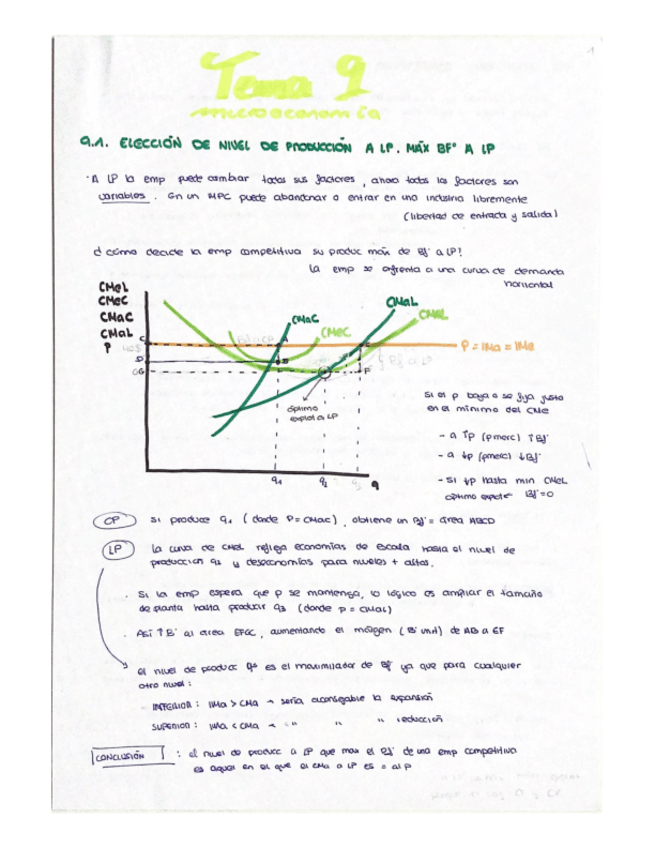 1
Tema 9
microeconomía
9.1. ELECCIÓN DE NIVEL DE PRODUCCIÓN A LP. MÁX BFº A LP
· A LP la emp puede cambiar todos sus factores, ahora todos los factores son
variables. En un MPC puede abandonar o entrar en una industria libremente
(libertad de entrada y salida)
¿Cómo decide la emp competitiva su produc max de Bf' a LP?
la emp se afronta a una curva de demanda
horizontal
CMeL
CMeC
CMaC
CMaL
P
CMaC
CMeC
CMaL
CMeL
P = IMa = IMe
C
40$
D
G
A
B
E
F
óptimo
explot a LP
q1
q2
q3
q
Si el p baja o se fija justo
en el mínimo del CMe
- a ↑p (pmerc) ↑Bf'
- a ↓p (pmerc) ↓Bf'
- Si ↓p hasta min CMeL
óptimo explot Bf'=0
CP si produce q1 (donde P = CMac), obtiene un Bf' = área ABCD
LP la curva de CMeL refleja economías de escala hasta el nivel de
produccion q2 y deseconomías para niveles + altos.
· Si la emp espera que p se mantenga, lo lógico es ampliar el tamaño
de planta hasta producir q3 (donde p = CMaL)
· Así ↑B' al área EFGC, aumentando el márgen (B' unit) de AB a EF
el nivel de produc q3 es el maximizador de Bf' ya que para cualquier
otro nivel:
INFERIOR: IMa > CMa → sería aconsejable la expansión
SUPERIOR: IMa < CMa → " " " reducción
CONCLUSIÓN : el nivel de producc a LP que max el Bf' de una emp competitiva
es aquel en el que el CMa a LP es = al p